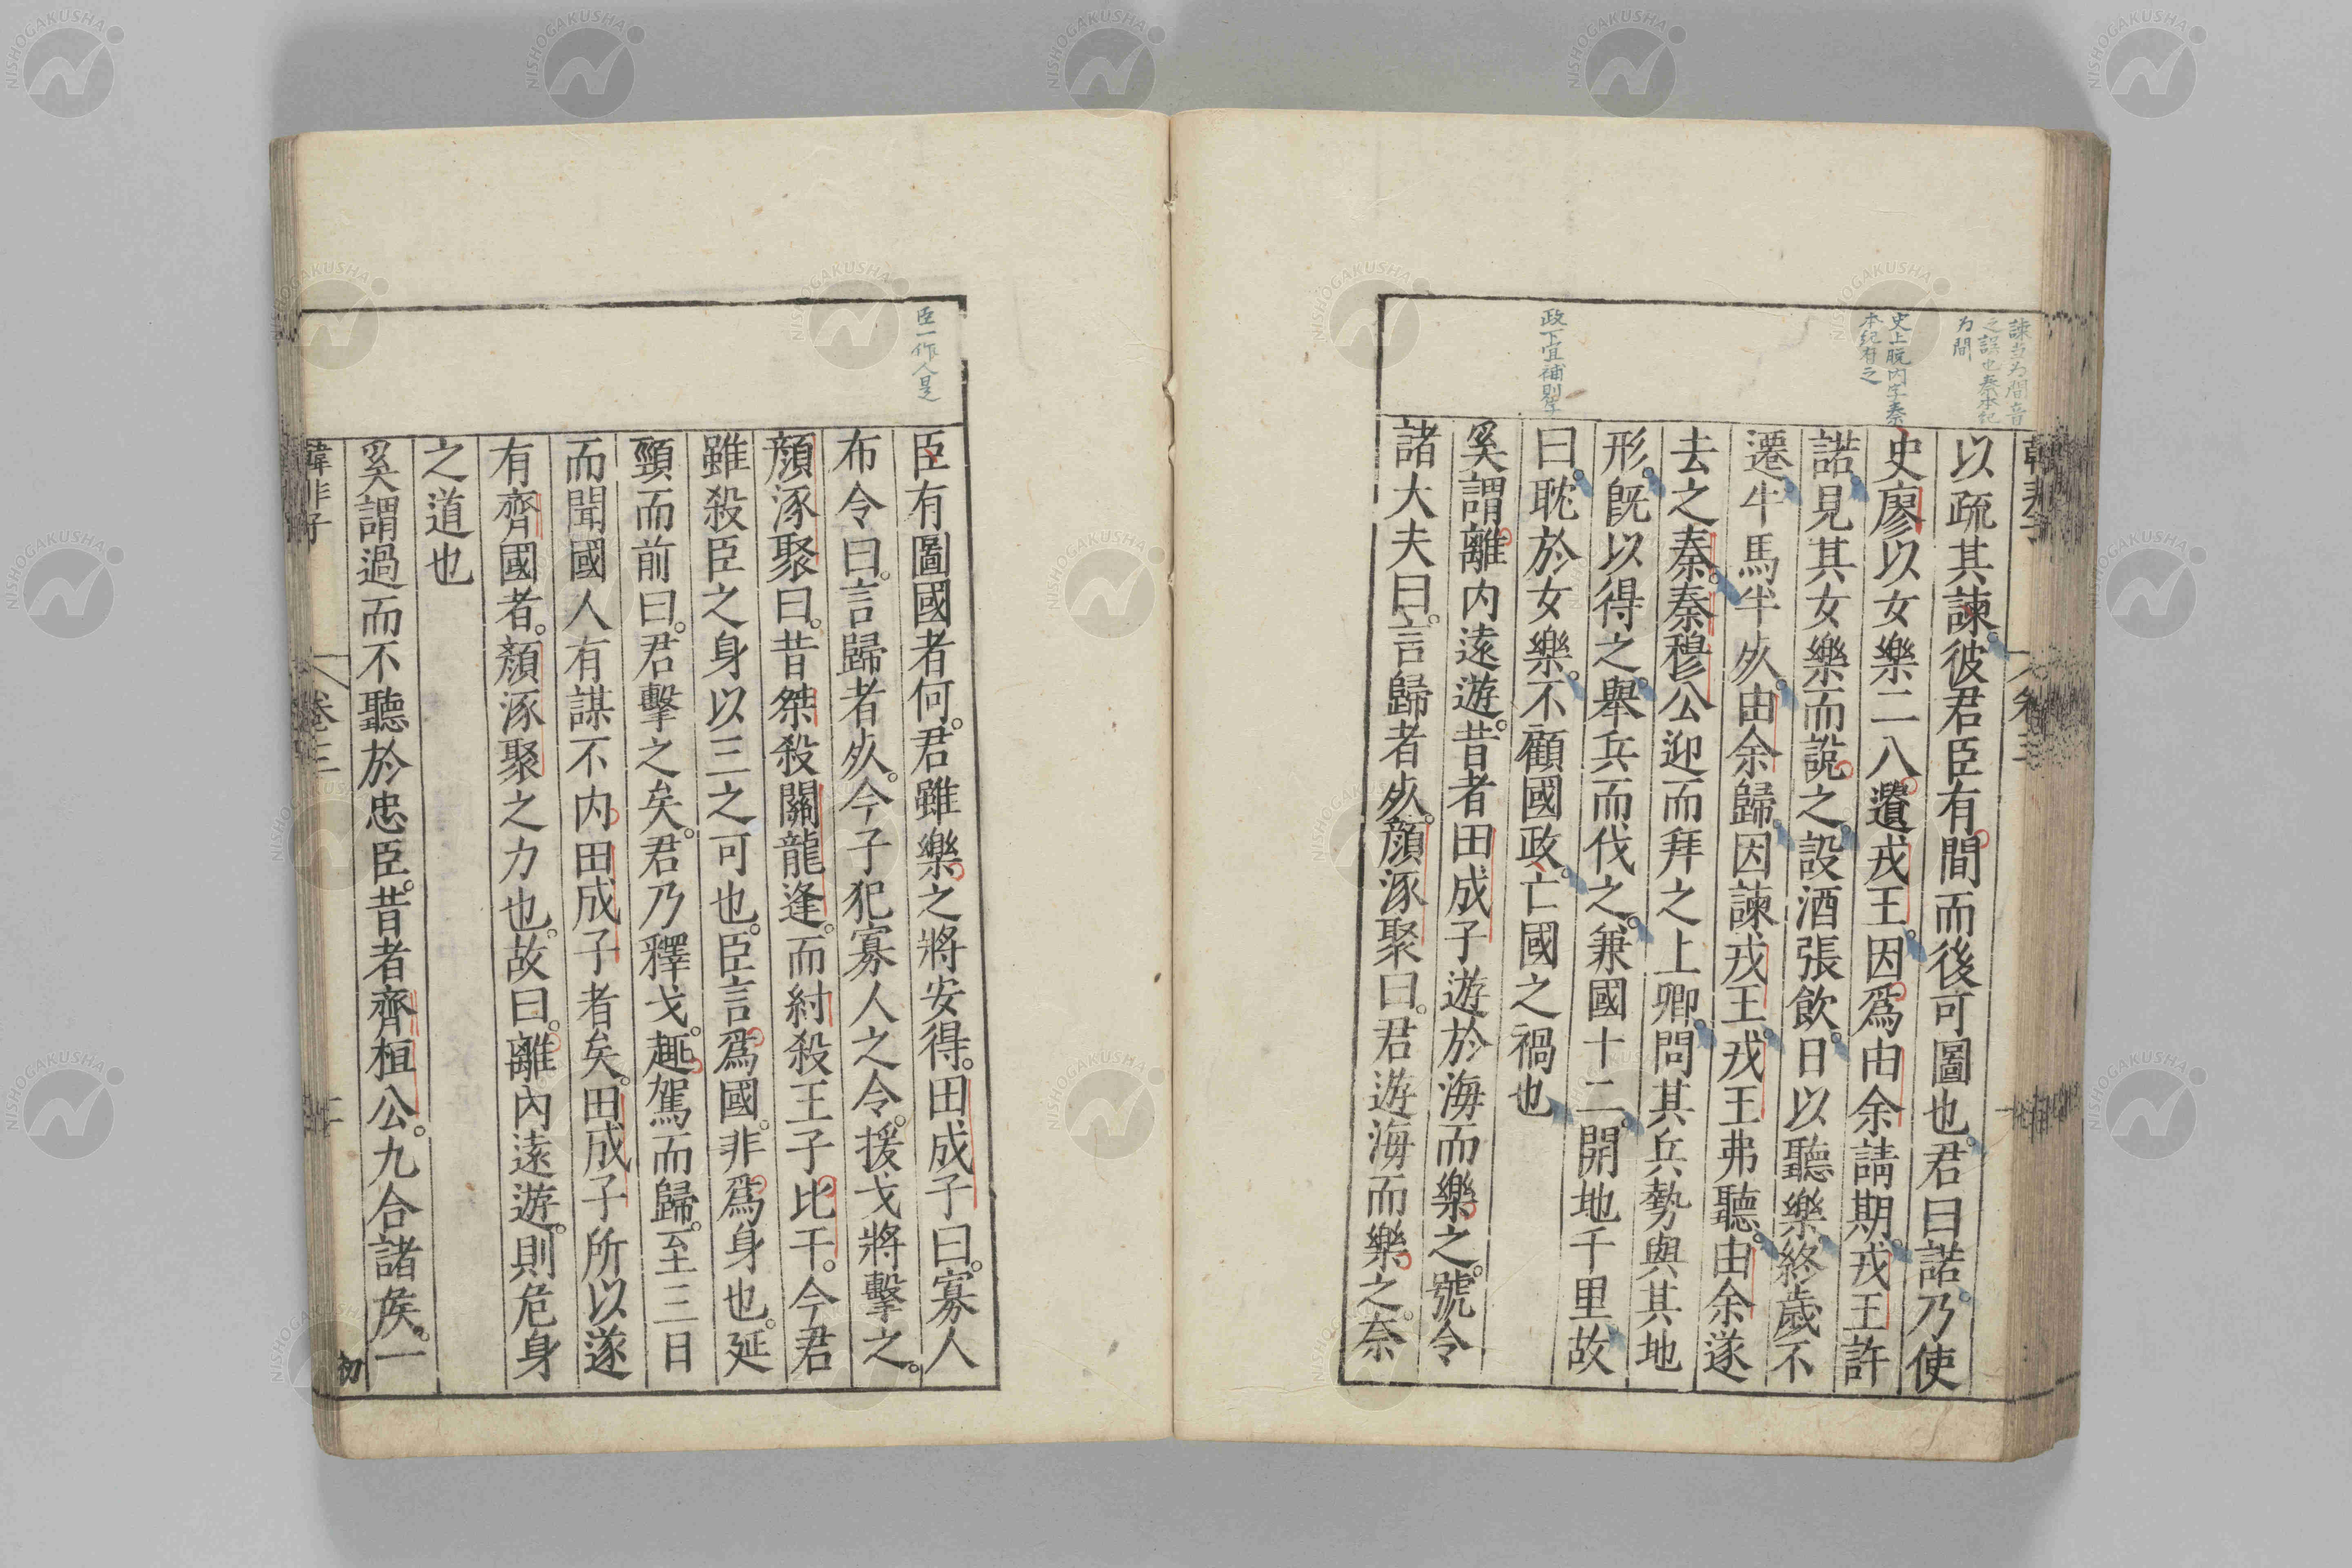 諫当为間音
之誤也秦本紀
为間
史上脱内字秦
本紀有之
政下宜補則字
以疏其諫。彼君臣有間而後可圖也。君曰諾。乃使
史廖以女樂二八遺戎王。因爲由余請期。戎王許
諾。見其女樂而說之。設酒張飲。日以聽樂。終歲不
遷。牛馬半死。由余歸。因諫戎王。戎王弗聽。由余遂
去之秦。秦穆公迎而拜之上卿。問其兵勢與其地
形。既以得之。舉兵而伐之。兼國十二。開地千里。故
曰。耽於女樂。不顧國政。亡國之禍也。
奚謂離内遠遊。昔者田成子遊於海而樂之。號令
諸大夫曰。言歸者死。顔涿聚曰。君遊海而樂之。奈
臣一作人是
臣有圖國者何。君雖樂之將安得。田成子曰。寡人
布令曰。言歸者死。今子犯寡人之令。援戈將擊之。
顔涿聚曰。昔桀殺關龍逢。而紂殺王子比干。今君
雖殺臣之身以三之可也。臣言爲國。非爲身也。延
頸而前曰。君擊之矣。君乃釋戈。趣駕而歸。至三日
而聞國人有謀不内田成子者矣。田成子所以遂
有齊國者。顔涿聚之力也。故曰。離内遠遊。則危身
之道也
奚謂過而不聽於忠臣。昔者齊桓公。九合諸侯。一
韓非子 卷三 二
初
NISHOGAKUSHA